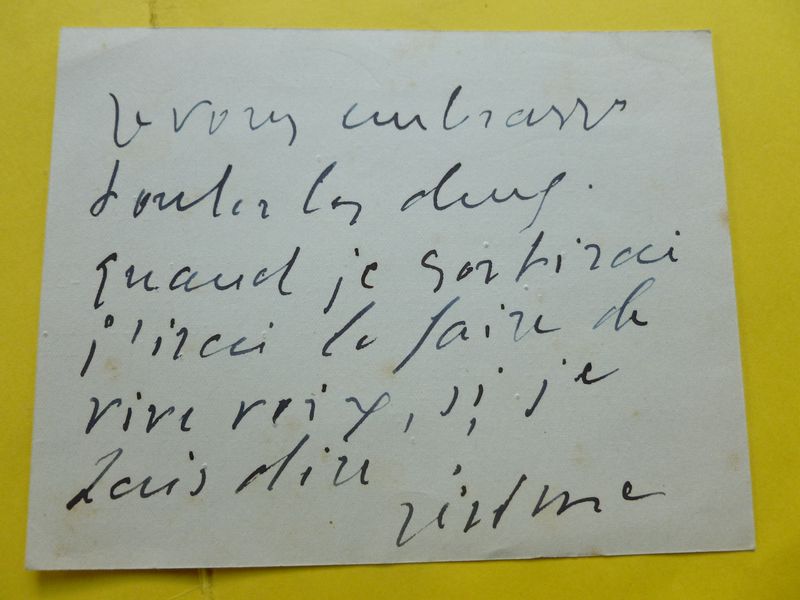 Je vous embrasse
toutes les deux.
quand je sortirai
j'irai le faire de
vive voix, si je
puis dire
Jérôme